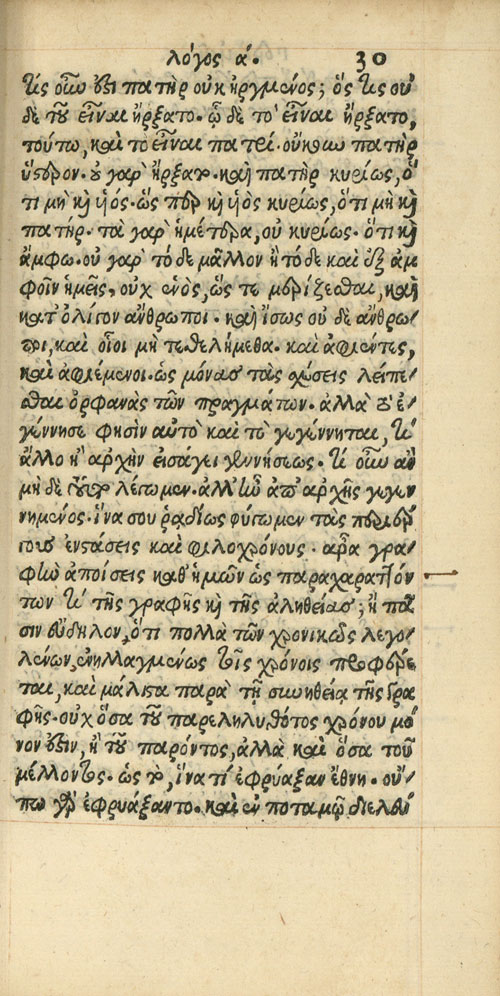 λόγος ά. 30
τίς οὖν ἐστι πατὴρ οὐκ ἠργμένος; ὅς τις οὐ
δὲ τοῦ εἶναι ἤρξατο. ᾧ δὲ τὸ εἶναι ἤρξατο,
τούτῳ, καὶ τὸ εἶναι πατρί. οὔκουν πατὴρ
ὕστερον. οὐ γὰρ ἤρξατο. καὶ πατὴρ κυρίως, ὅ
τι μὴ καὶ υἱός. ὥσπερ καὶ υἱὸς κυρίως, ὅτι μὴ καὶ
πατήρ. τὰ γὰρ ἡμέτερα, οὐ κυρίως. ὅτι καὶ
ἄμφω. οὐ γὰρ τόδε μᾶλλον ἢ τόδε καὶ ἐξ ἀμ
φοῖν ἡμεῖς, οὐχ ἑνὸς, ὥς τε μερίζεσθαι, καὶ
κατ' ὀλίγον ἄνθρωποι. καὶ ἴσως οὐ δὲ ἄνθρω
ποι, καὶ οἷοι μὴ τεθελήμεθα. καὶ ἀφιέντες,
καὶ ἀφιέμενοι. ὡς μόνας τὰς σχέσεις λείπε
σθαι ὀρφανὰς τῶν πραγμάτων. ἀλλὰ τὸ ἐ
γέννησε φησὶν αὐτὸ καὶ τὸ γεγέννηται, τί
ἄλλο ἢ ἀρχὴν εἰσάγει γεννήσεως. τί οὖν ἂν
μὴ δὲ οὕτω λέγωμεν. ἀλλ' ἦν ἀπ' ἀρχῆς γεγεν
νημένος. ἵνα σου ῥᾳδίως φύγωμεν τὰς περιέρ
γους ἐνστάσεις καὶ φιλοχρόνους. ἆρα γρα
φὴν ἀποίσεις καθ' ἡμῶν ὡς παραχαραττόν
των τί τῆς γραφῆς καὶ τῆς ἀληθείας; ἢ πᾶ
σιν εὔδηλον, ὅτι πολλὰ τῶν χρονικῶς λεγο
μένων, ἐνηλλαγμένως τοῖς χρόνοις προφέρε
ται, καὶ μάλιστα παρὰ τῇ συνηθείᾳ τῆς γρα
φῆς. οὐχ ὅσα τοῦ παρεληλυθότος χρόνου μό
νον ἐστὶν, ἢ τοῦ παρόντος, ἀλλὰ καὶ ὅσα τοῦ
μέλλοντος. ὡς τὸ, ἵνα τί ἐφρύαξαν ἔθνη. οὔ
πω γὰρ ἐφρυάξαντο. καὶ ἐν ποταμῷ διελεύ